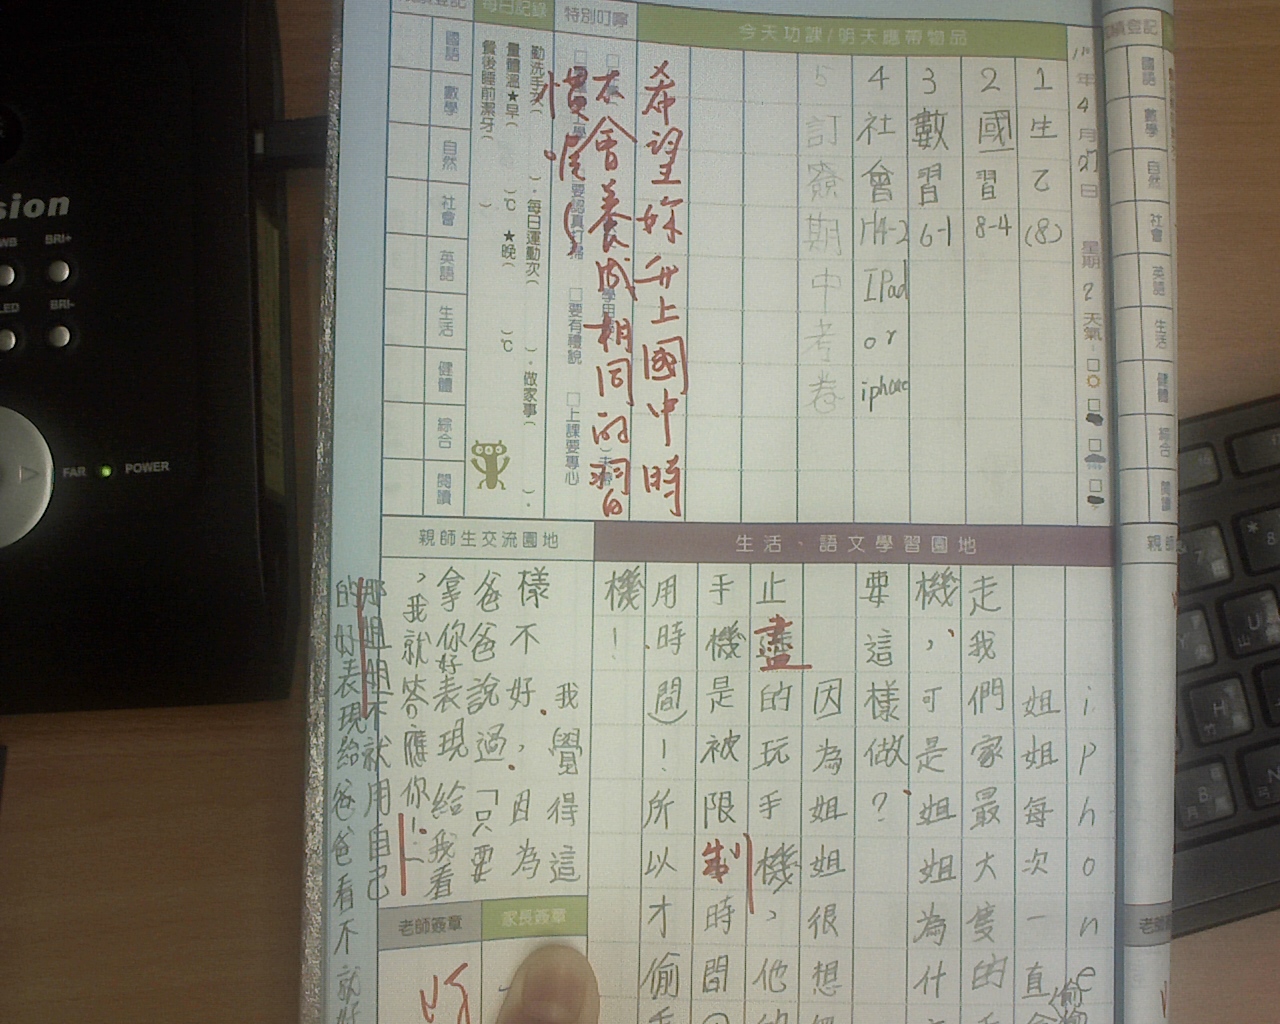 sion
WB
BRI+
LED
BRI-
FAR
POWER
今天功課/明天應帶物品
特別叮嚀
每日記錄
年4月27日 星期2 天氣:
1生乙(8)
2國習8-4
3數習6-1
4社會 IPad or iphone
5訂齊期中考卷
希望妳升上國中時
不會養成相同的習
慣喔!
要有禮貌
上課要專心
勤洗手 次( )·每日運動 次( )·做家事( )·
量體溫★早( )℃ ★晚( )℃
餐後睡前潔牙( )
國語
數學
自然
社會
英語
生活
健體
綜合
閱讀
國語
數學
自然
社會
英語
生活
健體
綜合
閱讀
生活、語文學習園地
親師生交流園地
iphone
姐姐每次一直偷
走我們家最大隻的
機,可是姐姐為什
要這樣做?
因為姐姐很想
止盡的玩手機,他
手機是被限制時間
用時間)!所以才偷
機!
我覺得這
樣不好.因為
爸爸說過,「只要
拿你好表現給我看
,我就答應你!」
那姐姐不就用自己
的好表現給爸爸看不就好
家長簽章
老師簽章